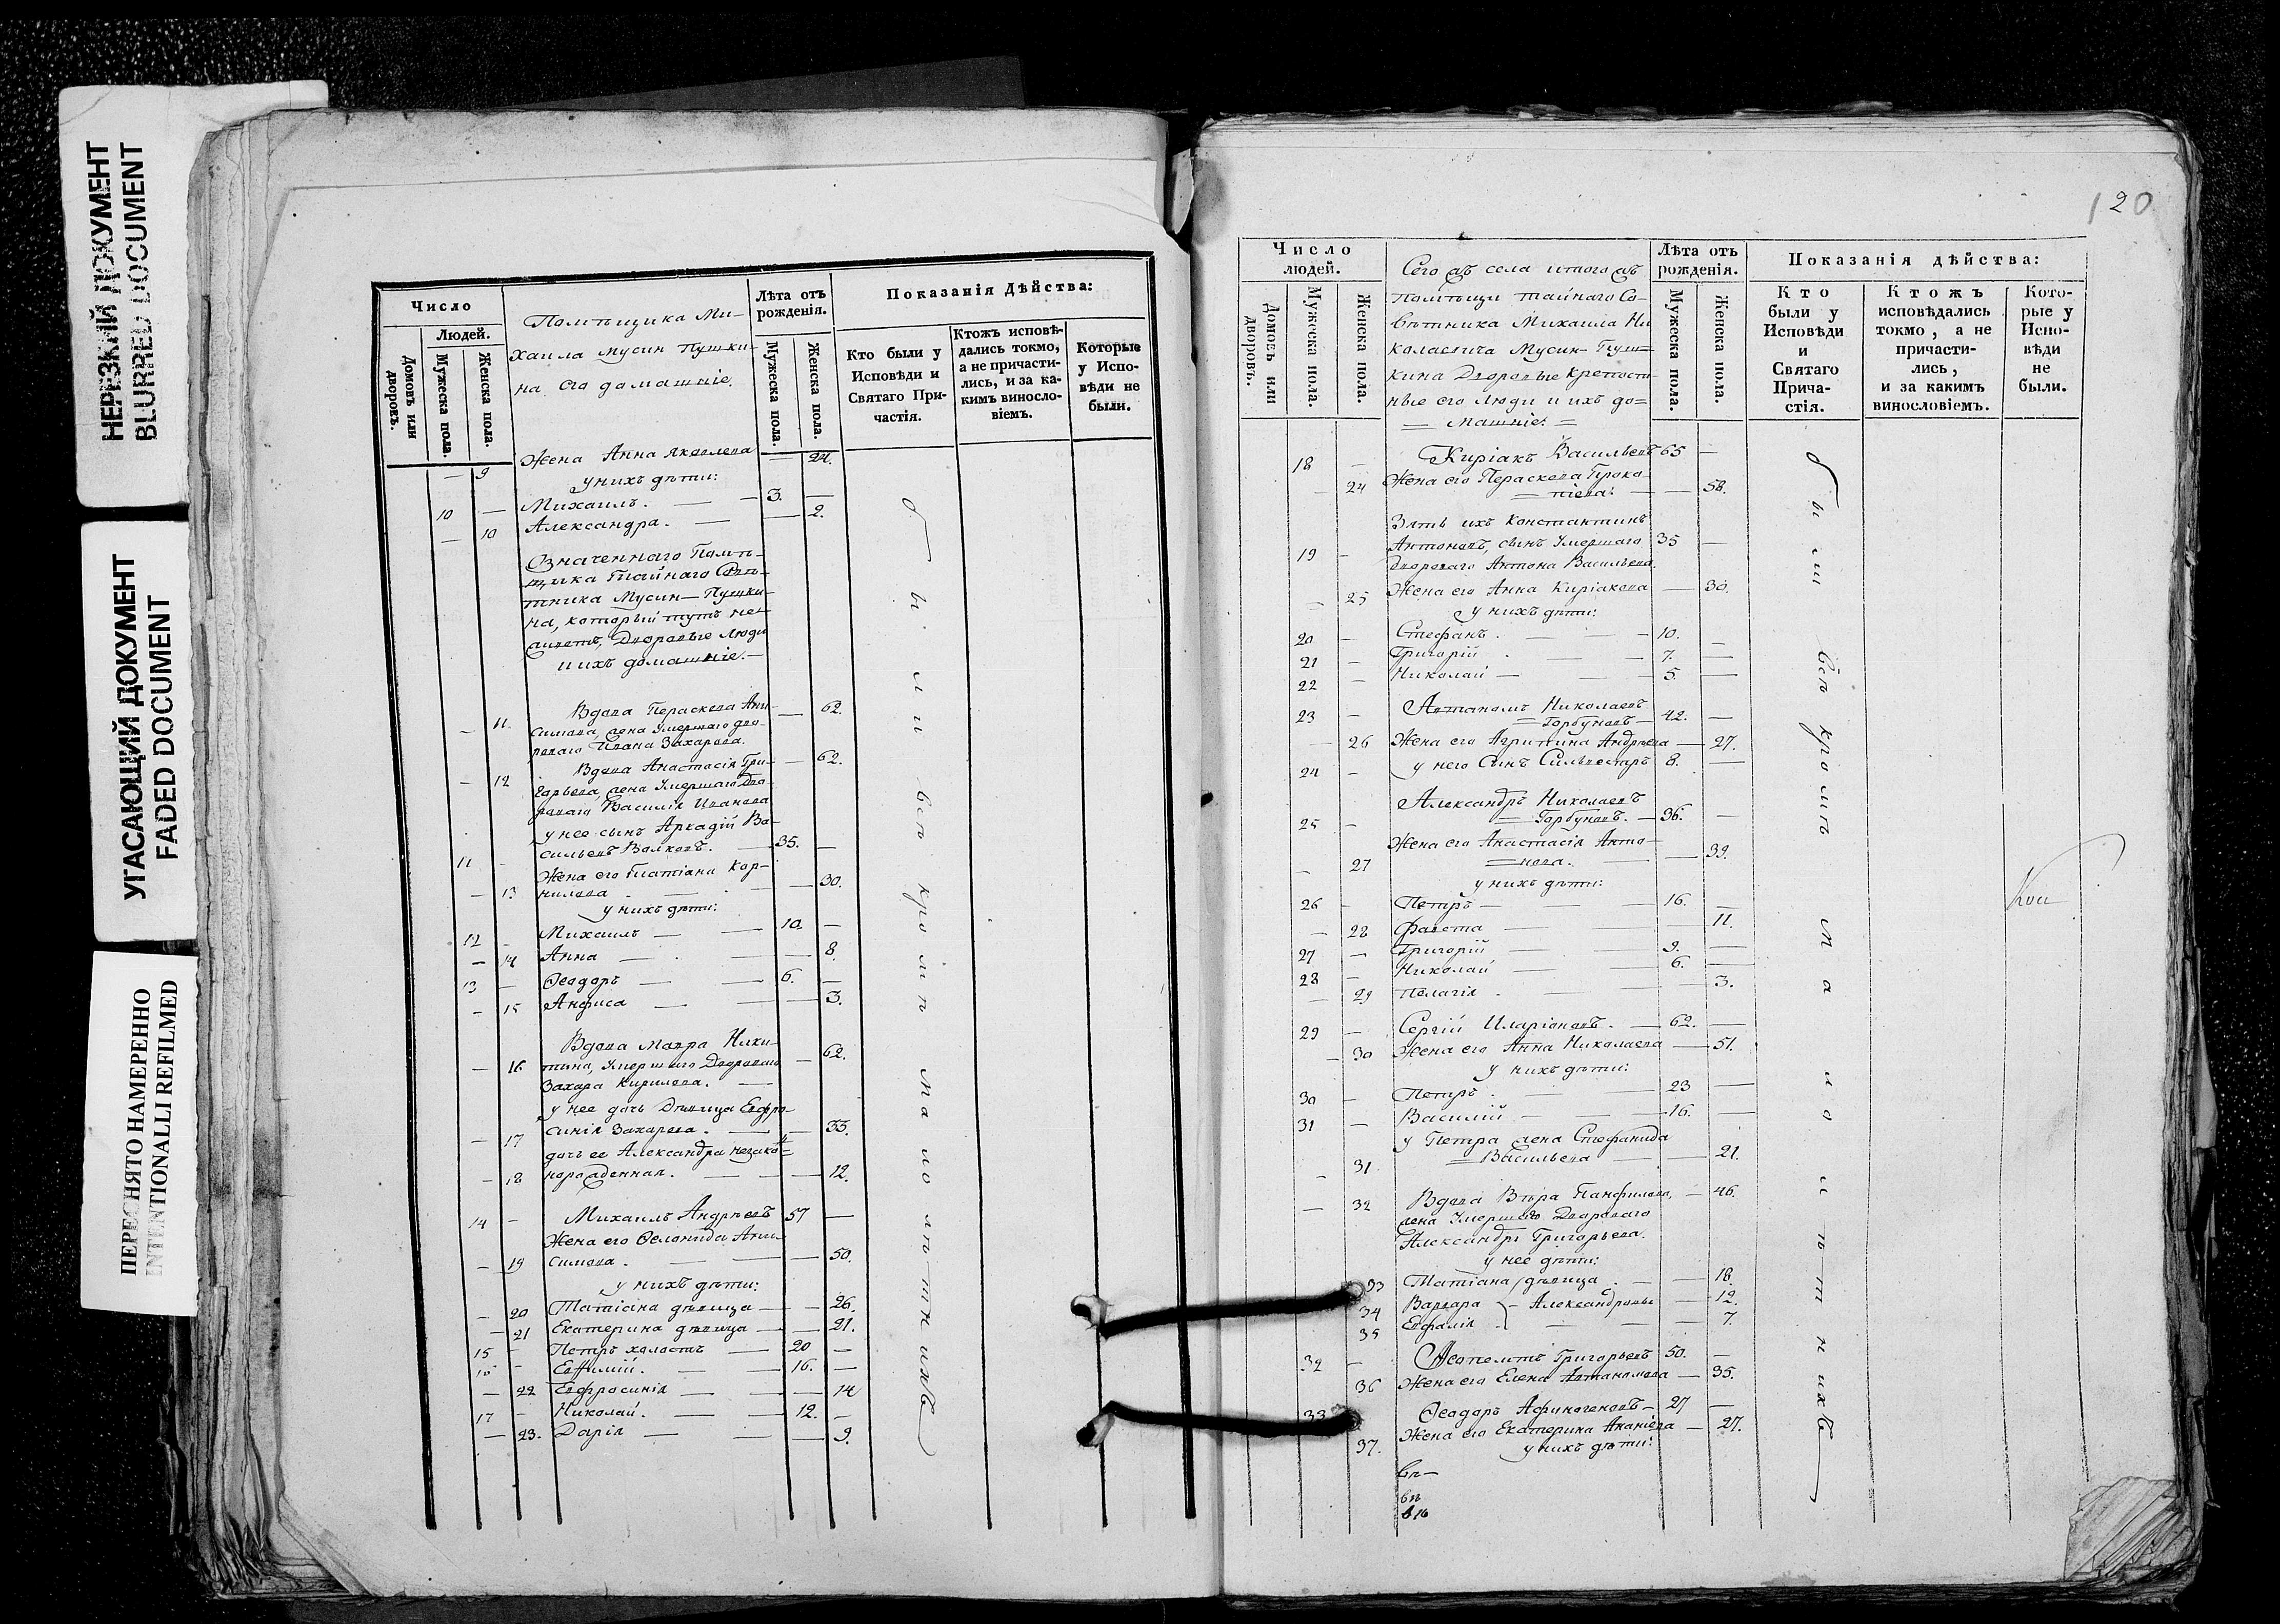 НЕРЕЗКИЙ ДОКУМЕНТ
BLURRED DOCUMENT
УГАСАЮЩИЙ ДОКУМЕНТ
FADED DOCUMENT
ПЕРЕСНЯТО НАМЕРЕННО
INTENTIONALLI REFILMED
Число
Людей.
Домовъ или дворовъ.
Мужеска пола.
Женска пола.
Помѣщика Ми-
хаила Мусин Пушки-
на его домашніе.
Лѣта отъ рожденія.
Мужеска пола.
Женска пола.
Показанія Дѣйства:
Кто были у Исповѣди и Святаго Причастія.
Ктожъ исповѣдались токмо, а не причастились, и за какимъ винословіемъ.
Которые у Исповѣди не были.
— 9 Жена Анна Яковлева — 24.
у нихъ дѣти:
10 — Михаилъ. — 3. —
— 10 Александра. — — 2.
Означеннаго Помѣ-
щика Тайнаго Совѣ-
тника Мусин-Пушки-
на, который тутъ не
живетъ, Дворовые люди
и ихъ домашніе.—
— 11. Вдова Параскева Ани- — 62.
симова, жена Умершаго дво-
роваго Ивана Захарова.
— 12 Вдова Анастасія Гри- — 62.
горьева, жена Умершаго Дво-
роваго Василія Иванова
у нее сынъ Аркадій Ва-
11 — сильевъ Волковъ. — 35. —
Жена его Татіана Кор-
— 13 нилова — — 30.
у нихъ дѣти:
12 — Михаилъ — 10. —
— 14 Анна — — 8.
13 — Ѳеодоръ — 6. —
— 15 Анфиса — — 3.
Вдова Мавра Ники-
— 16 тина, Умершаго Двороваго — 62.
Захара Кирилова. —
у нее дочь Дѣвица Евфро-
— 17 синія Захарова. — — 33.
дочь ее Александра незако-
— 18 норожденная. — — 12.
14 — Михаилъ Андреевъ 57 —
Жена его Ѳеонида Ани-
— 19 симова. — — 50.
у нихъ дѣти:
— 20 Татіана дѣвица — — 26.
— 21 Екатерина дѣвица — — 21.
15 — Петръ холостъ — 20 —
16 — Евѳимій. — 16. —
— 22 Евфросинія — — 14
17 — Николай. — 12. —
— 23. Дарія — — 9.
были всѣ кромѣ малолѣтнихъ
120
Число людей.
Домовъ или дворовъ.
Мужеска пола.
Женска пола.
Сего жъ села и того жъ
помѣщи тайнаго Со-
вѣтника Михаила Ни
колаевича Мусин-Пуш=
кина Дворовые крепост-
ные его люди и ихъ до=
= машніе: =
Лѣта отъ рожденія.
Мужеска пола.
Женска пола.
Показанія дѣйства:
Кто были у Исповѣди и Святаго Причастія.
Ктожъ исповѣдались токмо, а не причастились, и за какимъ винословіемъ.
Которые у Исповѣди не были.
18 — Киріакъ Васильевъ 65 —
— 24 Жена его Параскева Проко-
= піева: — — 58.
Зять ихъ Константинъ
19 — Антоновъ, сынъ Умершаго 35 —
Двороваго Антона Васильева.
— 25 Жена его Анна Киріакова — 30.
у нихъ дѣти:
20 — Стефанъ. — 10. —
21 — Григорій. — 7. —
22 — Николай — 5. —
23 — Автаномъ Николаевъ
= Горбуновъ — 42. —
— 26 Жена его Агрипина Андреева — 27.
24 — у него Сынъ Сильвестръ 8. —
Александръ Николаевъ
25 — = Горбуновъ. — 36. —
Жена его Анастасія Анто-
— 27 = нова. — — 39.
у нихъ дѣти:
26 — Петръ — 16. —
— 28 Фавста — — 11.
27 — Григорій — 9. —
28 — Николай — 6. —
— 29 Пелагія. — — 3.
29 — Сергій Иларіоновъ. — 62. —
— 30 Жена его Анна Николаева — 51.
у нихъ дѣти:
30 — Петръ. — 23 —
31 — Василій — 16. —
у Петра жена Стефанида
— 31 = Васильева — — 21.
— 32 Вдова Вѣра Панфилова, — 46.
жена Умершаго Двороваго
Александра Григорьева.
у нее дѣти:
33 Татіана дѣвица. — — 18.
34 Варвара — Александровы — 12.
35 Евфалія — — 7.
32 — Григорьевъ 50. —
36 Жена его Елена Автаномова — 35.
33 — Ѳеодоръ Афиногеновъ — 27 —
37. Жена его Екатерина Ананіева — 27.
у нихъ дѣти:
были всѣ кромѣ малолѣтнихъ